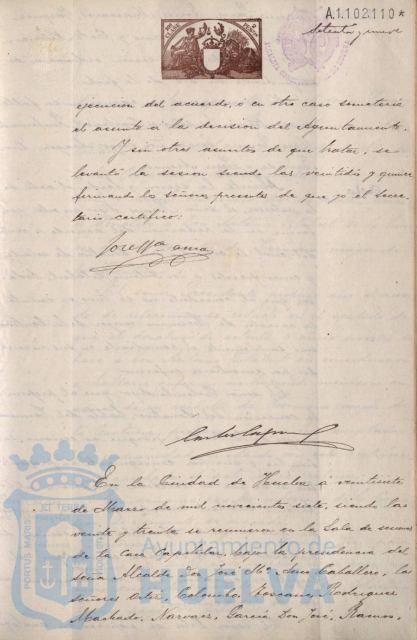 A.1.102.110*
setenta y nueve
ejecución del acuerdo, ó en otro caso someteria
el asunto a la decision del Ayuntamiento.
Y sin otros asuntos de que tratar, se
levantó la sesion siendo las veintidos y quince
firmando los señores presentes de que yo el Secre-
tario certifico:
En la Ciudad de Huelva a veintisiete
de Marzo de mil novecientos siete, siendo las
veinte y treinta se reunieron en la Sala de sesiones
de la Casa Capitular, bajo la presidencia del
señor Alcalde Don José Mª Caballero, los
señores Ortiz, Colombo, Toscano, Rodriguez
Machado, Narvaez, Garcia Don José, Ramos,
Ayuntamiento de
HUELVA
PORTUS MARIS
ET TERRAE